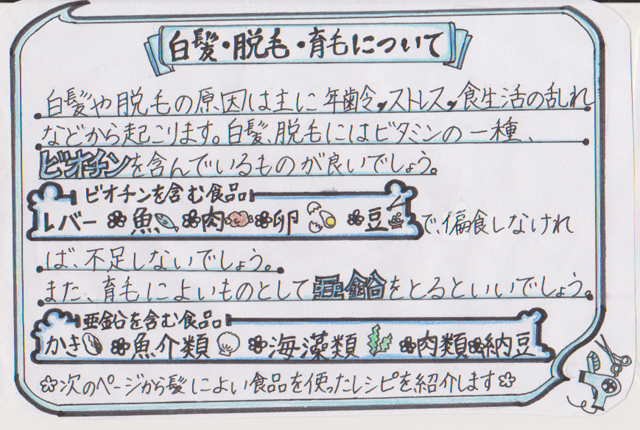 白髪・脱毛・育毛について
白髪や脱毛の原因は主に年齢、ストレス、食生活の乱れ
などから起こります。白髪、脱毛にはビタミンの一種、
ビオチンを含んでいるものが良いでしょう。
ビオチンを含む食品
レバー ✽魚 ✽肉 ✽卵 ✽豆
で、偏食しなけれ
ば、不足しないでしょう。
また、育毛によいものとして亜鉛をとるといいでしょう。
亜鉛を含む食品
かき ✽魚介類 ✽海藻類 ✽肉類✽納豆
✿次のページから髪によい食品を使ったレシピを紹介します✿